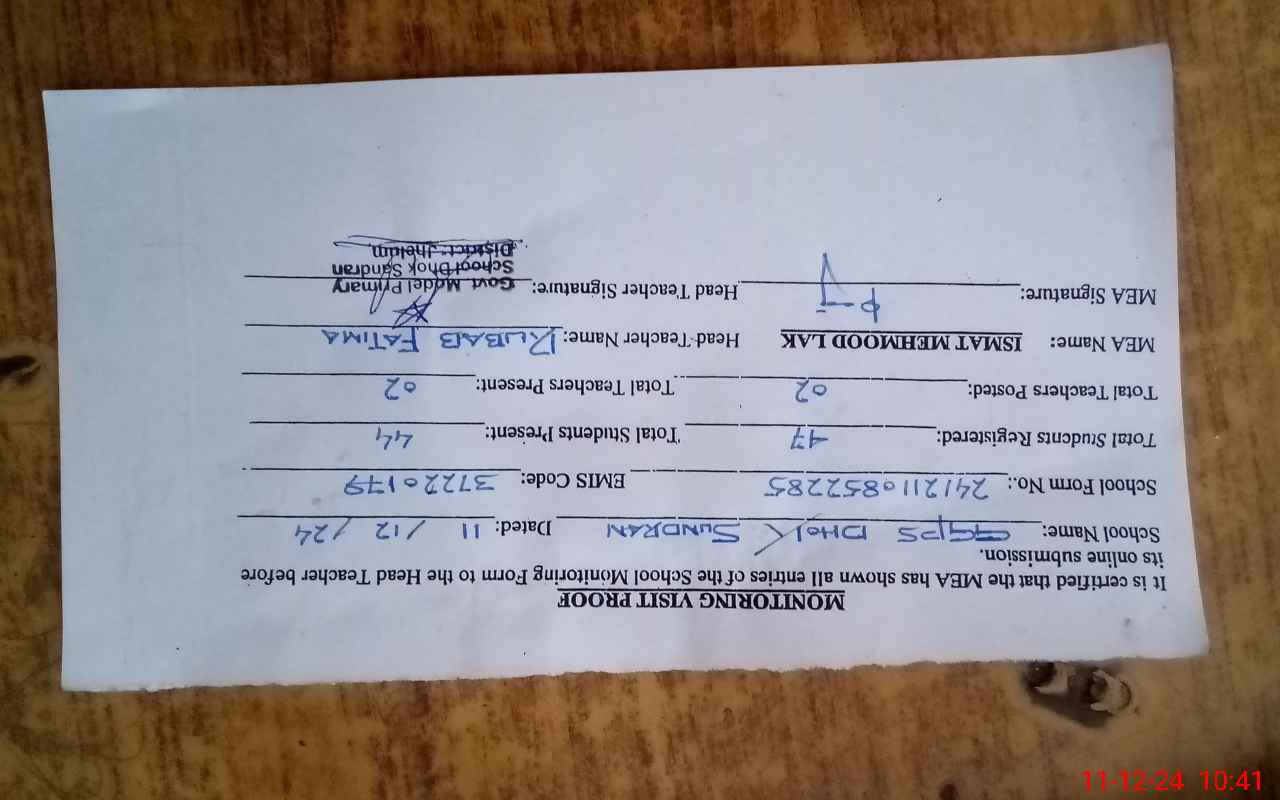 MONITORING VISIT PROOF
It is certified that the MEA has shown all entries of the School Monitoring Form to the Head Teacher before
its online submission.
School Name: GGPS DHOK SUNDRAN Dated: 11 / 12 / 24
School Form No.: 2412110852285 EMIS Code: 37220179
Total Students Registered: 47 Total Students Present: 44
Total Teachers Posted: 02 Total Teachers Present: 02
MEA Name: ISMAT MEHMOOD LAK Head Teacher Name: RUBAB FATIMA
MEA Signature: Head Teacher Signature:
Govt. Model Primary
School Dhok Sandran
District Jhelum
11-12-24 10:41